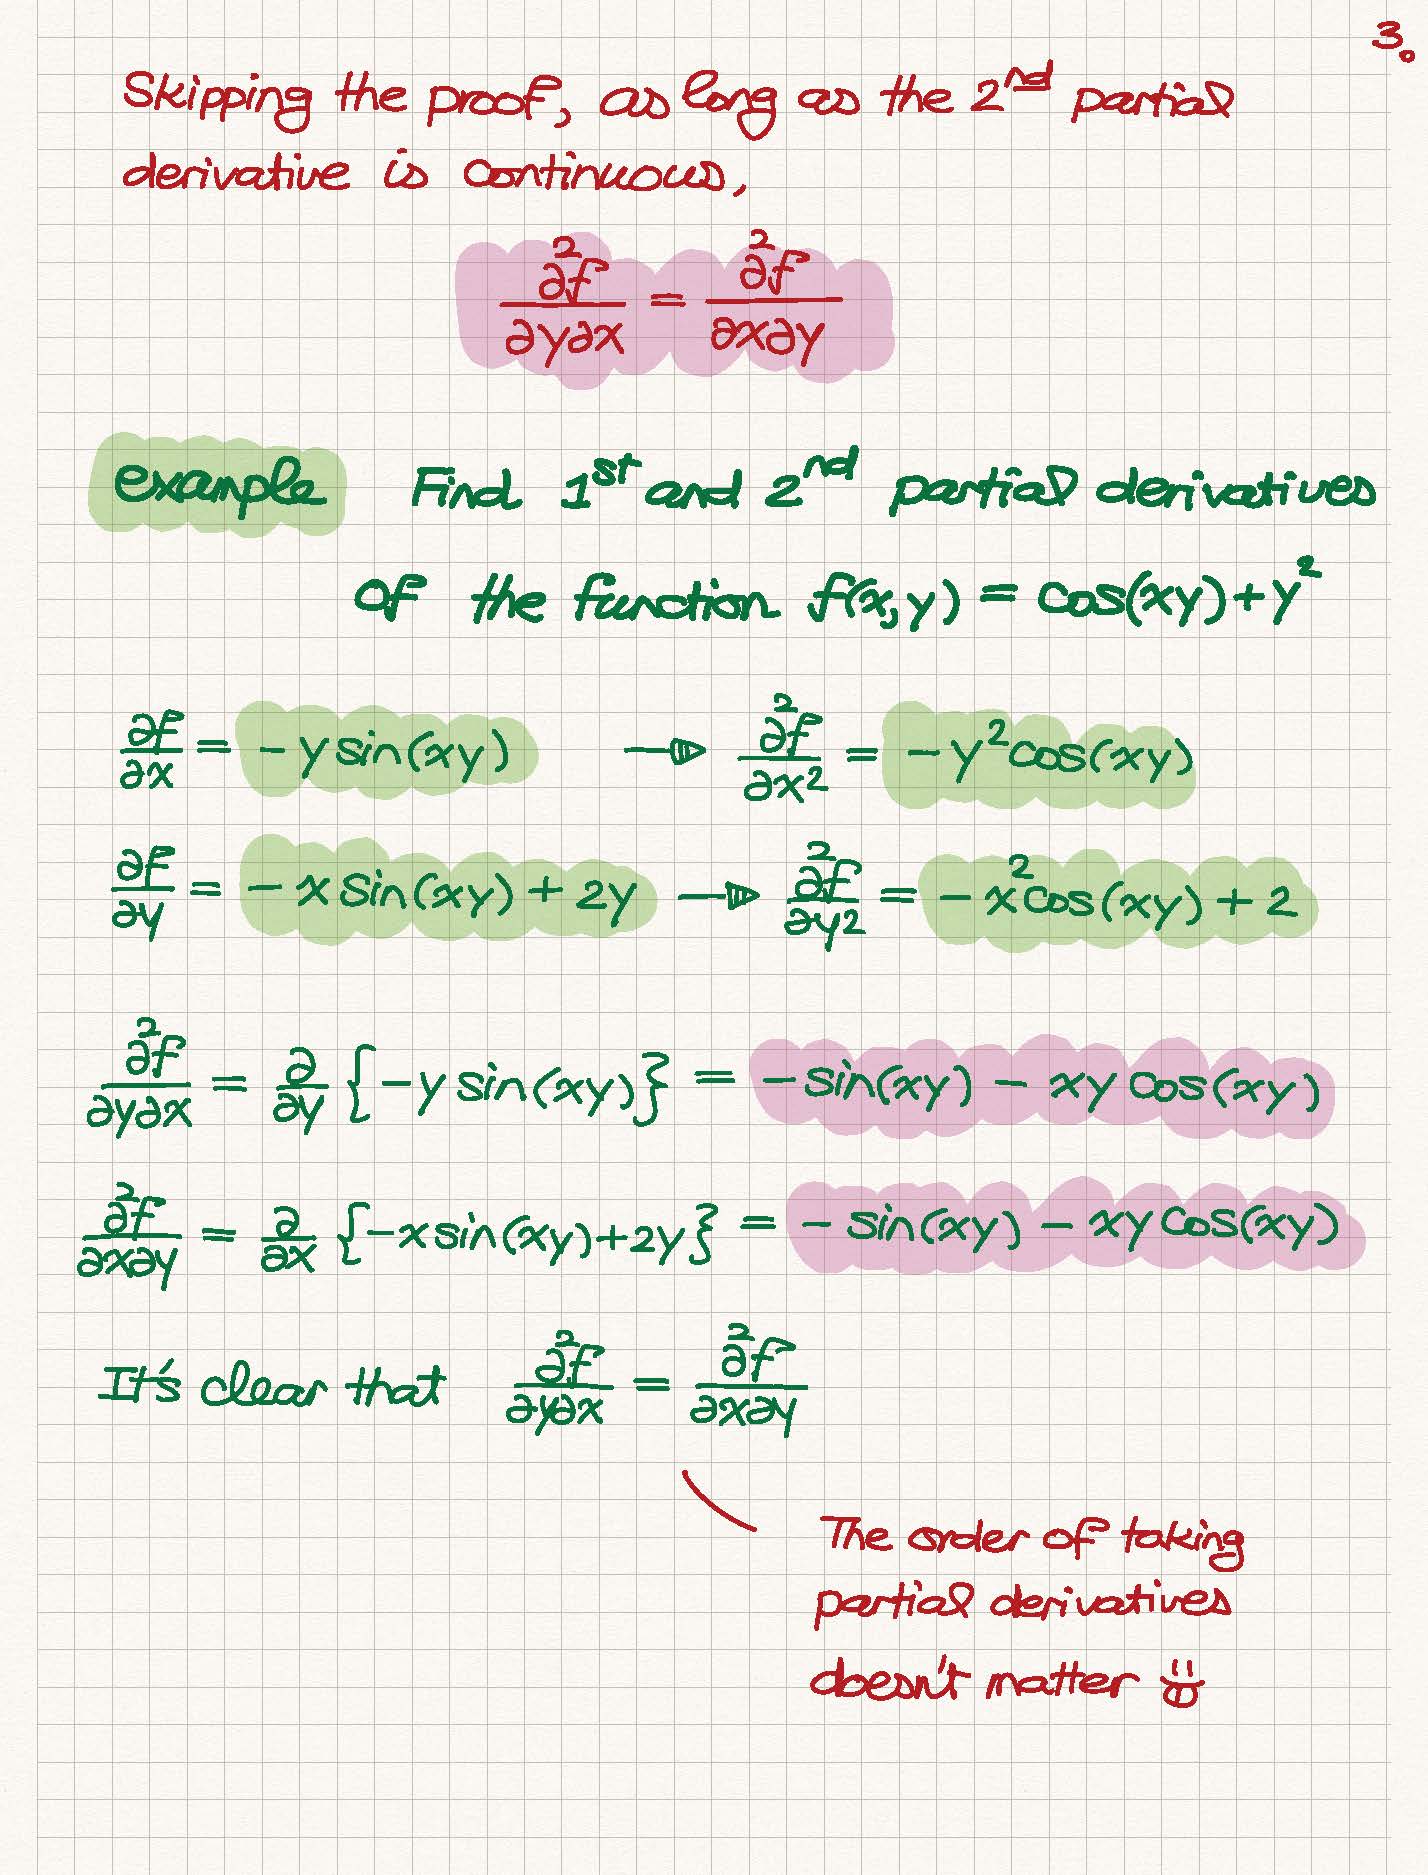 3.
Skipping the proof, as long as the 2nd partial
derivative is continuous,
∂²f/∂y∂x = ∂²f/∂x∂y
example Find 1st and 2nd partial derivatives
of the function f(x,y) = cos(xy)+y²
∂f/∂x = -y sin(xy) → ∂²f/∂x² = -y²cos(xy)
∂f/∂y = -x sin(xy) + 2y → ∂²f/∂y² = -x²cos(xy) + 2
∂²f/∂y∂x = ∂/∂y {-y sin(xy)} = -sin(xy) - xy cos(xy)
∂²f/∂x∂y = ∂/∂x {-x sin(xy)+2y} = -sin(xy) - xy cos(xy)
It's clear that ∂²f/∂y∂x = ∂²f/∂x∂y
The order of taking
partial derivatives
doesn't matter